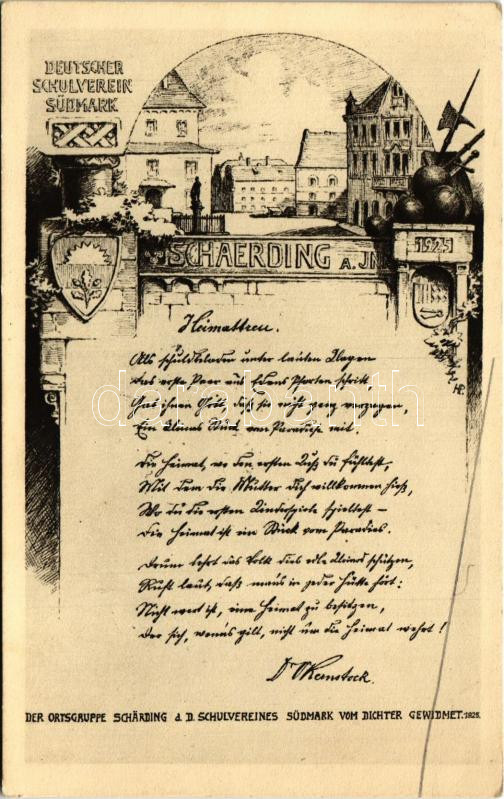 DEUTSCHER
SCHULVEREIN
SÜDMARK
SCHAERDING A. JN
1925
Heimattreu.
Als schuldbeladen unter lauten Klagen
Das erste Paar aus Edens Pforten schritt
Gab ihnen Gott, daß sie nicht ganz verzagen,
Ein kleines Stück vom Paradiese mit.
Die Heimat, wo den ersten Kuß du fühltest,
Mit dem die Mutter dich willkommen hieß,
Wo du die ersten Kinderspiele spieltest –
Die Heimat ist ein Stück vom Paradies.
Drum lehrt das Volk dies edle Kleinod schützen,
Ruft laut, daß man's in jeder Hütte hört:
Nicht wert ist, eine Heimat zu besitzen,
Der sich, wenn's gilt, nicht um die Heimat wehrt!
Dr OKernstock.
DER ORTSGRUPPE SCHÄRDING d. D. SCHULVEREINES SÜDMARK VOM DICHTER GEWIDMET. 1925.
HP
darabanth